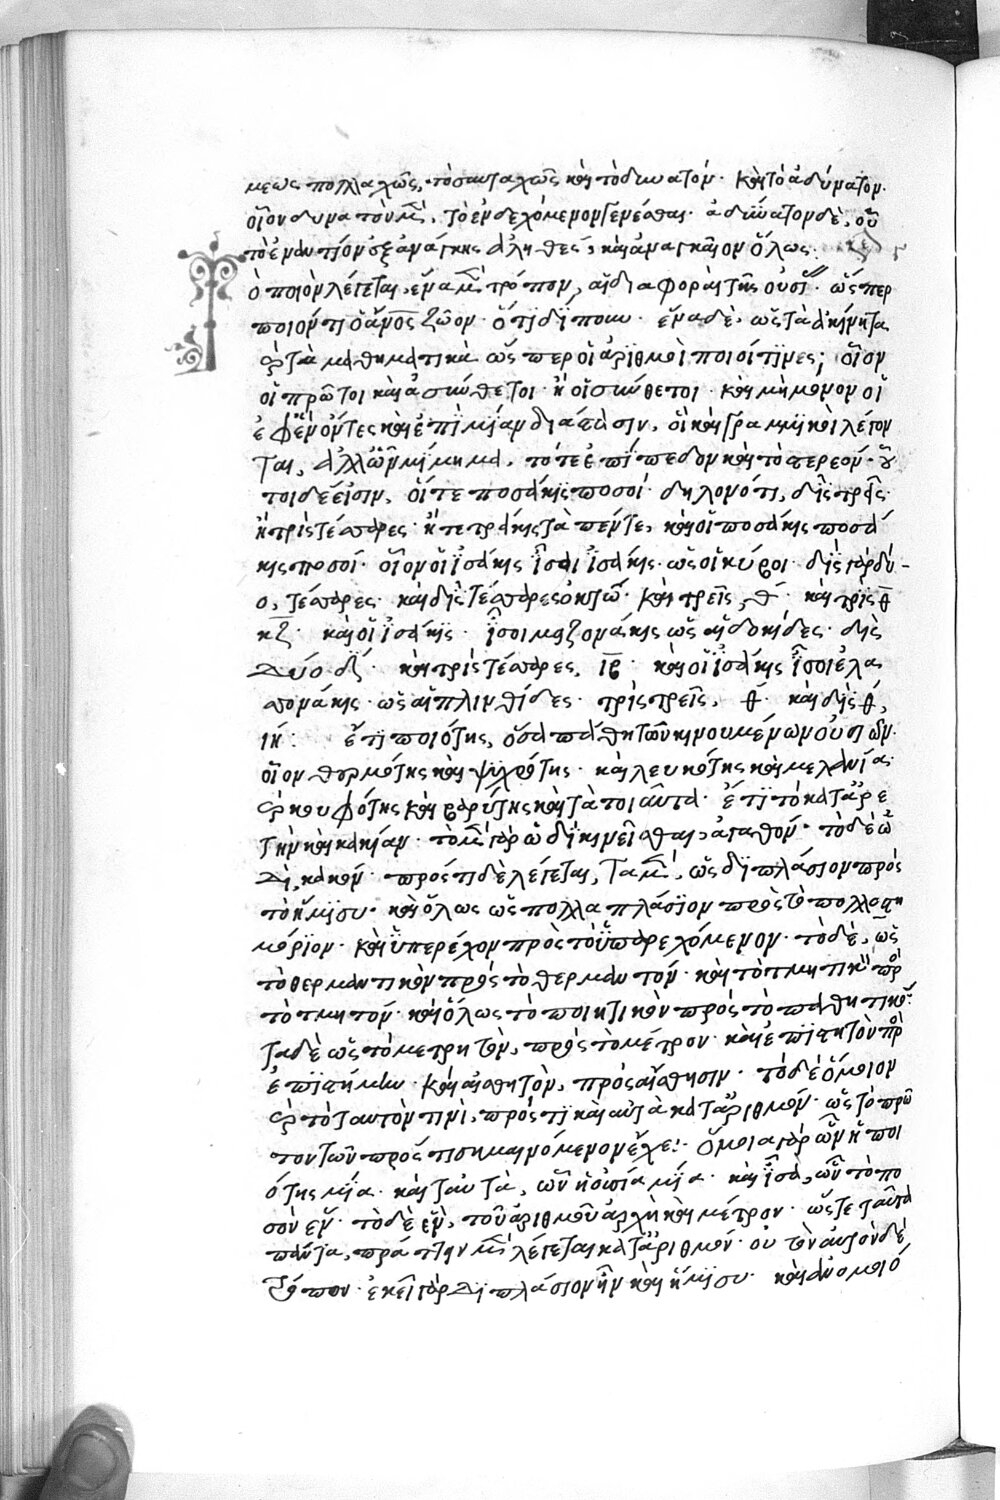 μεως πολλαχῶς, τοσαυταχῶς καὶ τὸ δυνατόν· καὶ τὸ ἀδύνατον·
οἷον δυνατὸν μὲν, τὸ ἐνδεχόμενον γενέσθαι· ἀδύνατον δὲ, οὗ
τὸ ἐναντίον ἐξ ἀνάγκης ἀληθές, καὶ ἀναγκαῖον ὅλως:
ὁ ποιὸν λέγεται, ἕνα μὲν τρόπον, αἱ διαφοραὶ τῆς οὐσί· ὥσπερ
ποιόν τι ὁ ἄνος ζῶον· ὅτι δίπουν· ἕνα δὲ, ὡς τὰ ἀκίνητα
καὶ τὰ μαθηματικὰ ὥσπερ οἱ ἀριθμοὶ ποιοί τινες, οἷον
οἱ πρῶτοι καὶ ἀσύνθετοι· ἢ οἱ σύνθετοι· καὶ μὴ μόνον οἱ
ἐφ' ἓν ὄντες καὶ ἐπὶ μίαν διάστασιν, οἳ καὶ γραμμικοὶ λέγον
ται, ἀλλ' ὧν μίμημα, τό τε ἐπίπεδον καὶ τὸ στερεόν· οὗ
τοι δέ εἰσιν, οἵ τε ποσάκις ποσοί· δηλονότι, δὶς τρεῖς·
ἢ τρὶς τέσσαρες· ἢ τετράκις τὰ πέντε, καὶ οἱ ποσάκις ποσά
κις ποσοί· οἷον οἱ ἰσάκις ἴσοι ἰσάκις· ὡς οἱ κύβοι· δὶς γὰρ δύ-
ο, τέσσαρες· καὶ δὶς τέσσαρες ὀκτώ· καὶ τρεῖς, θ· καὶ τρὶς θ
κζ· καὶ οἱ ἰσάκις· ἴσοι μειζονάκις ὡς αἱ δοκίδες· δὶς
δύο δ· καὶ τρὶς τέσσαρες, ιβ· καὶ οἱ ἰσάκις ἴσοι ἐλα
σσονάκις· ὡς αἱ πλινθίδες· τρὶς τρεῖς, θ· καὶ δὶς θ,
ιη· ἔτι ποιότης, ὅσα πάθη τῶν κινουμένων οὐσιῶν·
οἷον θερμότης καὶ ψυχρότης· καὶ λευκότης καὶ μελανία·
καὶ κουφότης καὶ βαρύτης καὶ τὰ τοιαῦτα· ἔτι τὸ κατ' ἀρε
τὴν καὶ κακίαν· τὸ μὲν γὰρ ὡδὶ κινεῖσθαι, ἀγαθόν· τὸ δὲ ὡ
δὶ, κακόν· πρός τι δὲ λέγεται, τὰ μὲν, ὡς διπλάσιον πρὸς
τὸ ἥμισυ· καὶ ὅλως ὡς πολλαπλάσιον πρὸς τὸ πολλοστη
μόριον· καὶ ὑπερέχον πρὸς τὸ ὑπερεχόμενον· τὸ δὲ, ὡς
τὸ θερμαντικὸν πρὸς τὸ θερμαντόν· καὶ τὸ τμητικὸν πρὸς
τὸ τμητόν· καὶ ὅλως τὸ ποιητικὸν πρὸς τὸ παθητικόν·
τὰ δὲ ὡς τὸ μετρητὸν, πρὸς τὸ μέτρον· καὶ ἐπιστητὸν πρὸς
ἐπιστήμην· καὶ αἰσθητὸν, πρὸς αἴσθησιν· τὸ δὲ ὅμοιον
καὶ τὸ ταυτὸν τινὶ, πρός τι καὶ αὐτὰ κατ' ἀριθμόν· ὡς τὸ πρῶ
τον τῶν πρός τι σημαινόμενον ἔχει· ὅμοια γὰρ ὧν ἡ ποι
ότης μία· καὶ ταὐτὰ, ὧν ἡ οὐσία μία· καὶ ἴσα, ὧν τὸ πο
σὸν ἕν· τὸ δὲ ἓν, τοῦ ἀριθμοῦ ἀρχὴ καὶ μέτρον· ὥστε ταῦτα
πάντα, πρός τι μὲν λέγεται κατ' ἀριθμόν· οὐ τὸν αὐτὸν δὲ
τρόπον· ἐκεῖ γὰρ διπλάσιον ἦν καὶ ἥμισυ· καὶ ἀνομοιό